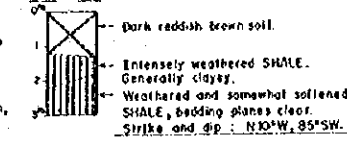 0
Dark reddish brown soil.
1
Intensely weathered SHALE.
Generally clayey.
2
Weathered and somewhat softened
SHALE, bedding planes clear.
3
Strike and dip : N10°W, 85°SW.